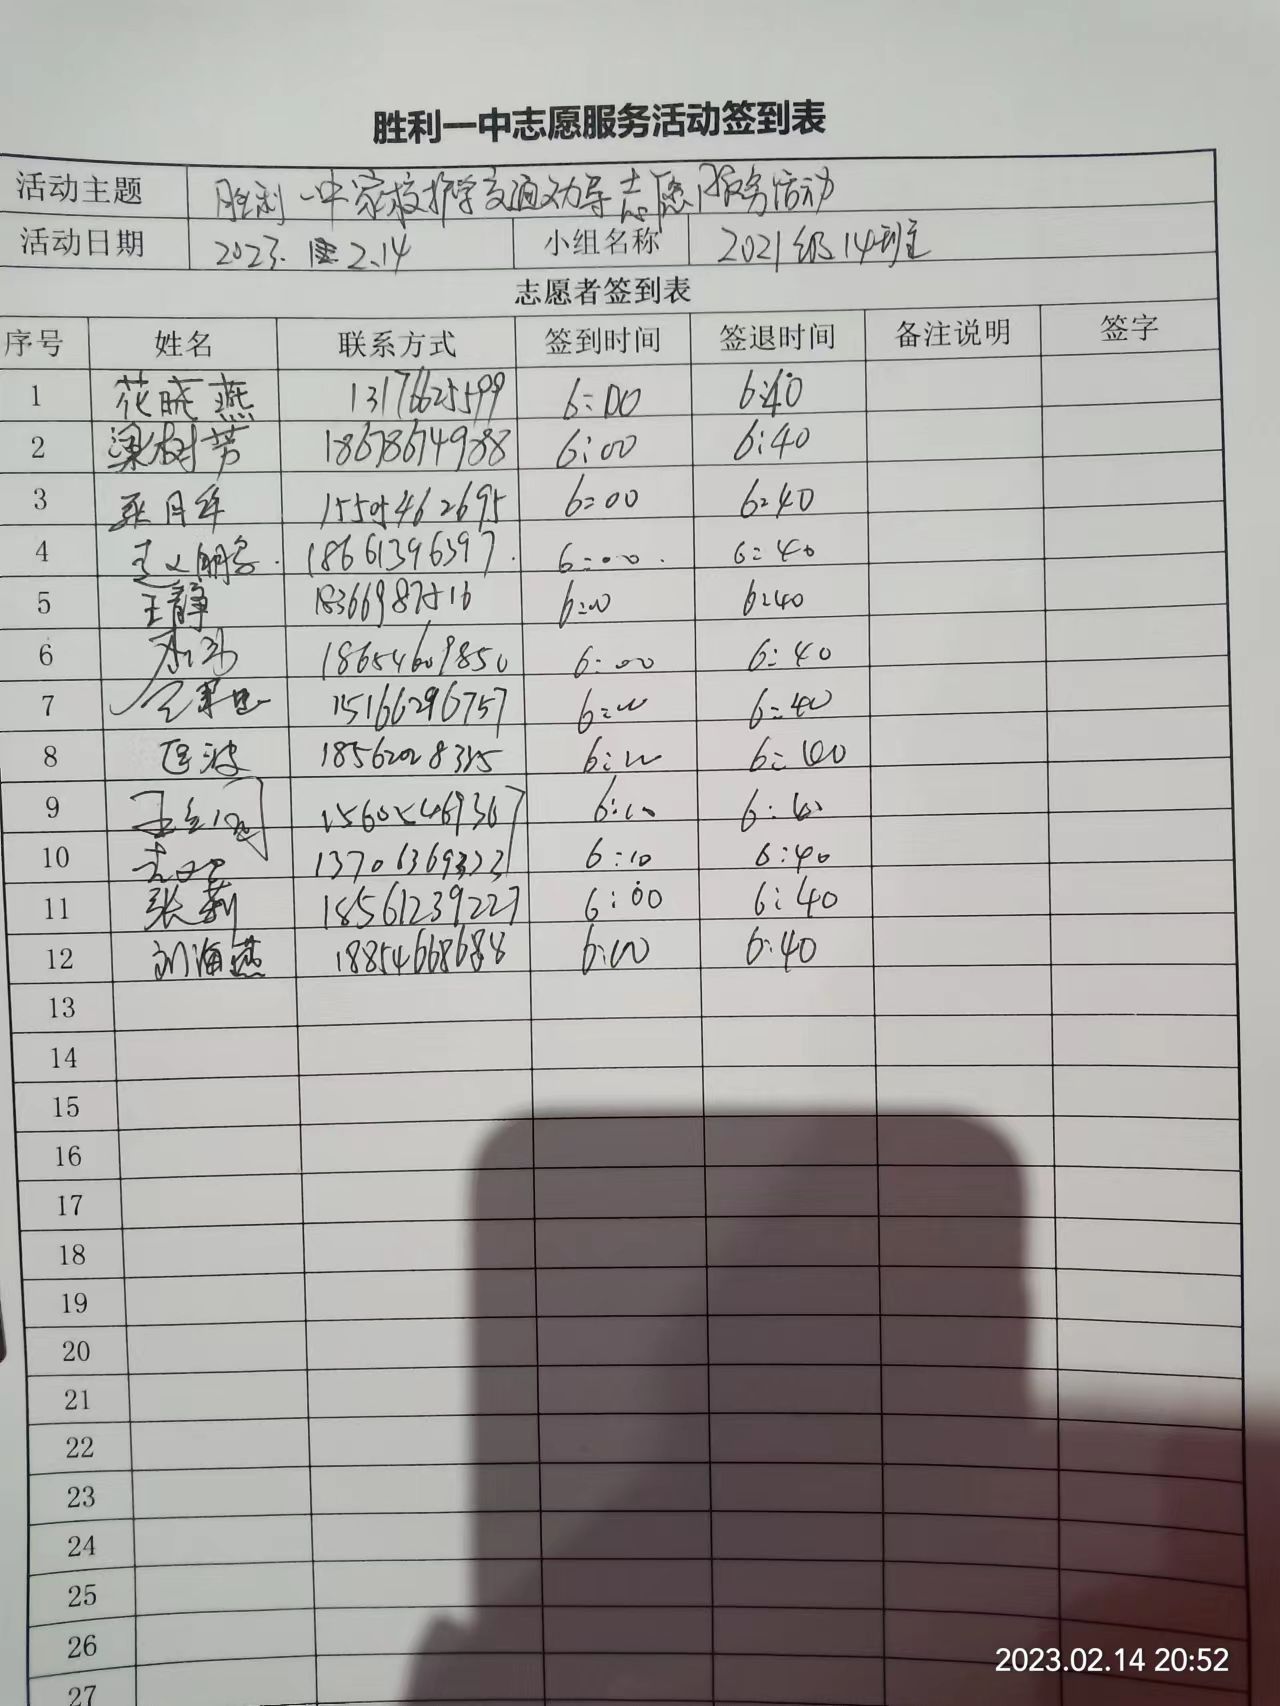 胜利一中志愿服务活动签到表
活动主题 胜利一中家校护学交通劝导志愿服务活动
活动日期 2023. 2.14 小组名称 2021级14班
志愿者签到表
序号 姓名 联系方式 签到时间 签退时间 备注说明 签字
1 花晓燕 13176625599 6:00 6:40
2 梁树芳 18678674988 6:00 6:40
3 15505462695 6:00 6:40
4 18661396397 6:00 6:40
5 王静 18366987516 6:00 6:40
6 18654609850 6:00 6:40
7 15166296757 6:00 6:40
8 匡波 6:00 6:40
9 15605469367 6:40
10 13706369323 6:10 6:40
11 张莉 18561239227 6:00 6:40
12 刘海燕 18854668688 6:00 6:40
13
14
15
16
17
18
19
20
21
22
23
24
25
26
27
2023.02.14 20:52